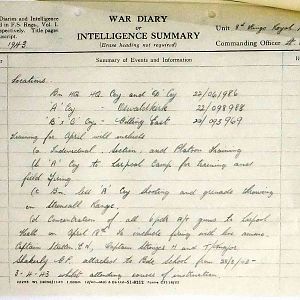 Diaries and Intelligence
d in F.S. Regs., Vol. I.
pectively. Title pages
uscript.
1943
WAR DIARY
OF
INTELLIGENCE SUMMARY
(Erase heading not required)
Unit 8th Kings Royal
Commanding Officer Lt.
Summary of Events and Information
Locations.
Bn HQ HQ Coy and D Coy 22/061986
'A' Coy - Oswaldkirk - 22/098988
'B' & 'C' Coy - Gilling East - 22/093969
Training for April will include
(a) Individual, Section, and Platoon training
(b) 'A' Coy to Larpool Camp for training and
field firing.
(c) Bn less 'A' Coy shooting and grenade throwing
on Strensall Range.
(d) Concentration of all 6 pdr A/T guns to Larpool
Hall on April 18th to include firing with live ammo.
Captain Captain Sturges H and
attached to Bde School from
3-4-43 whilst attending course of instruction.